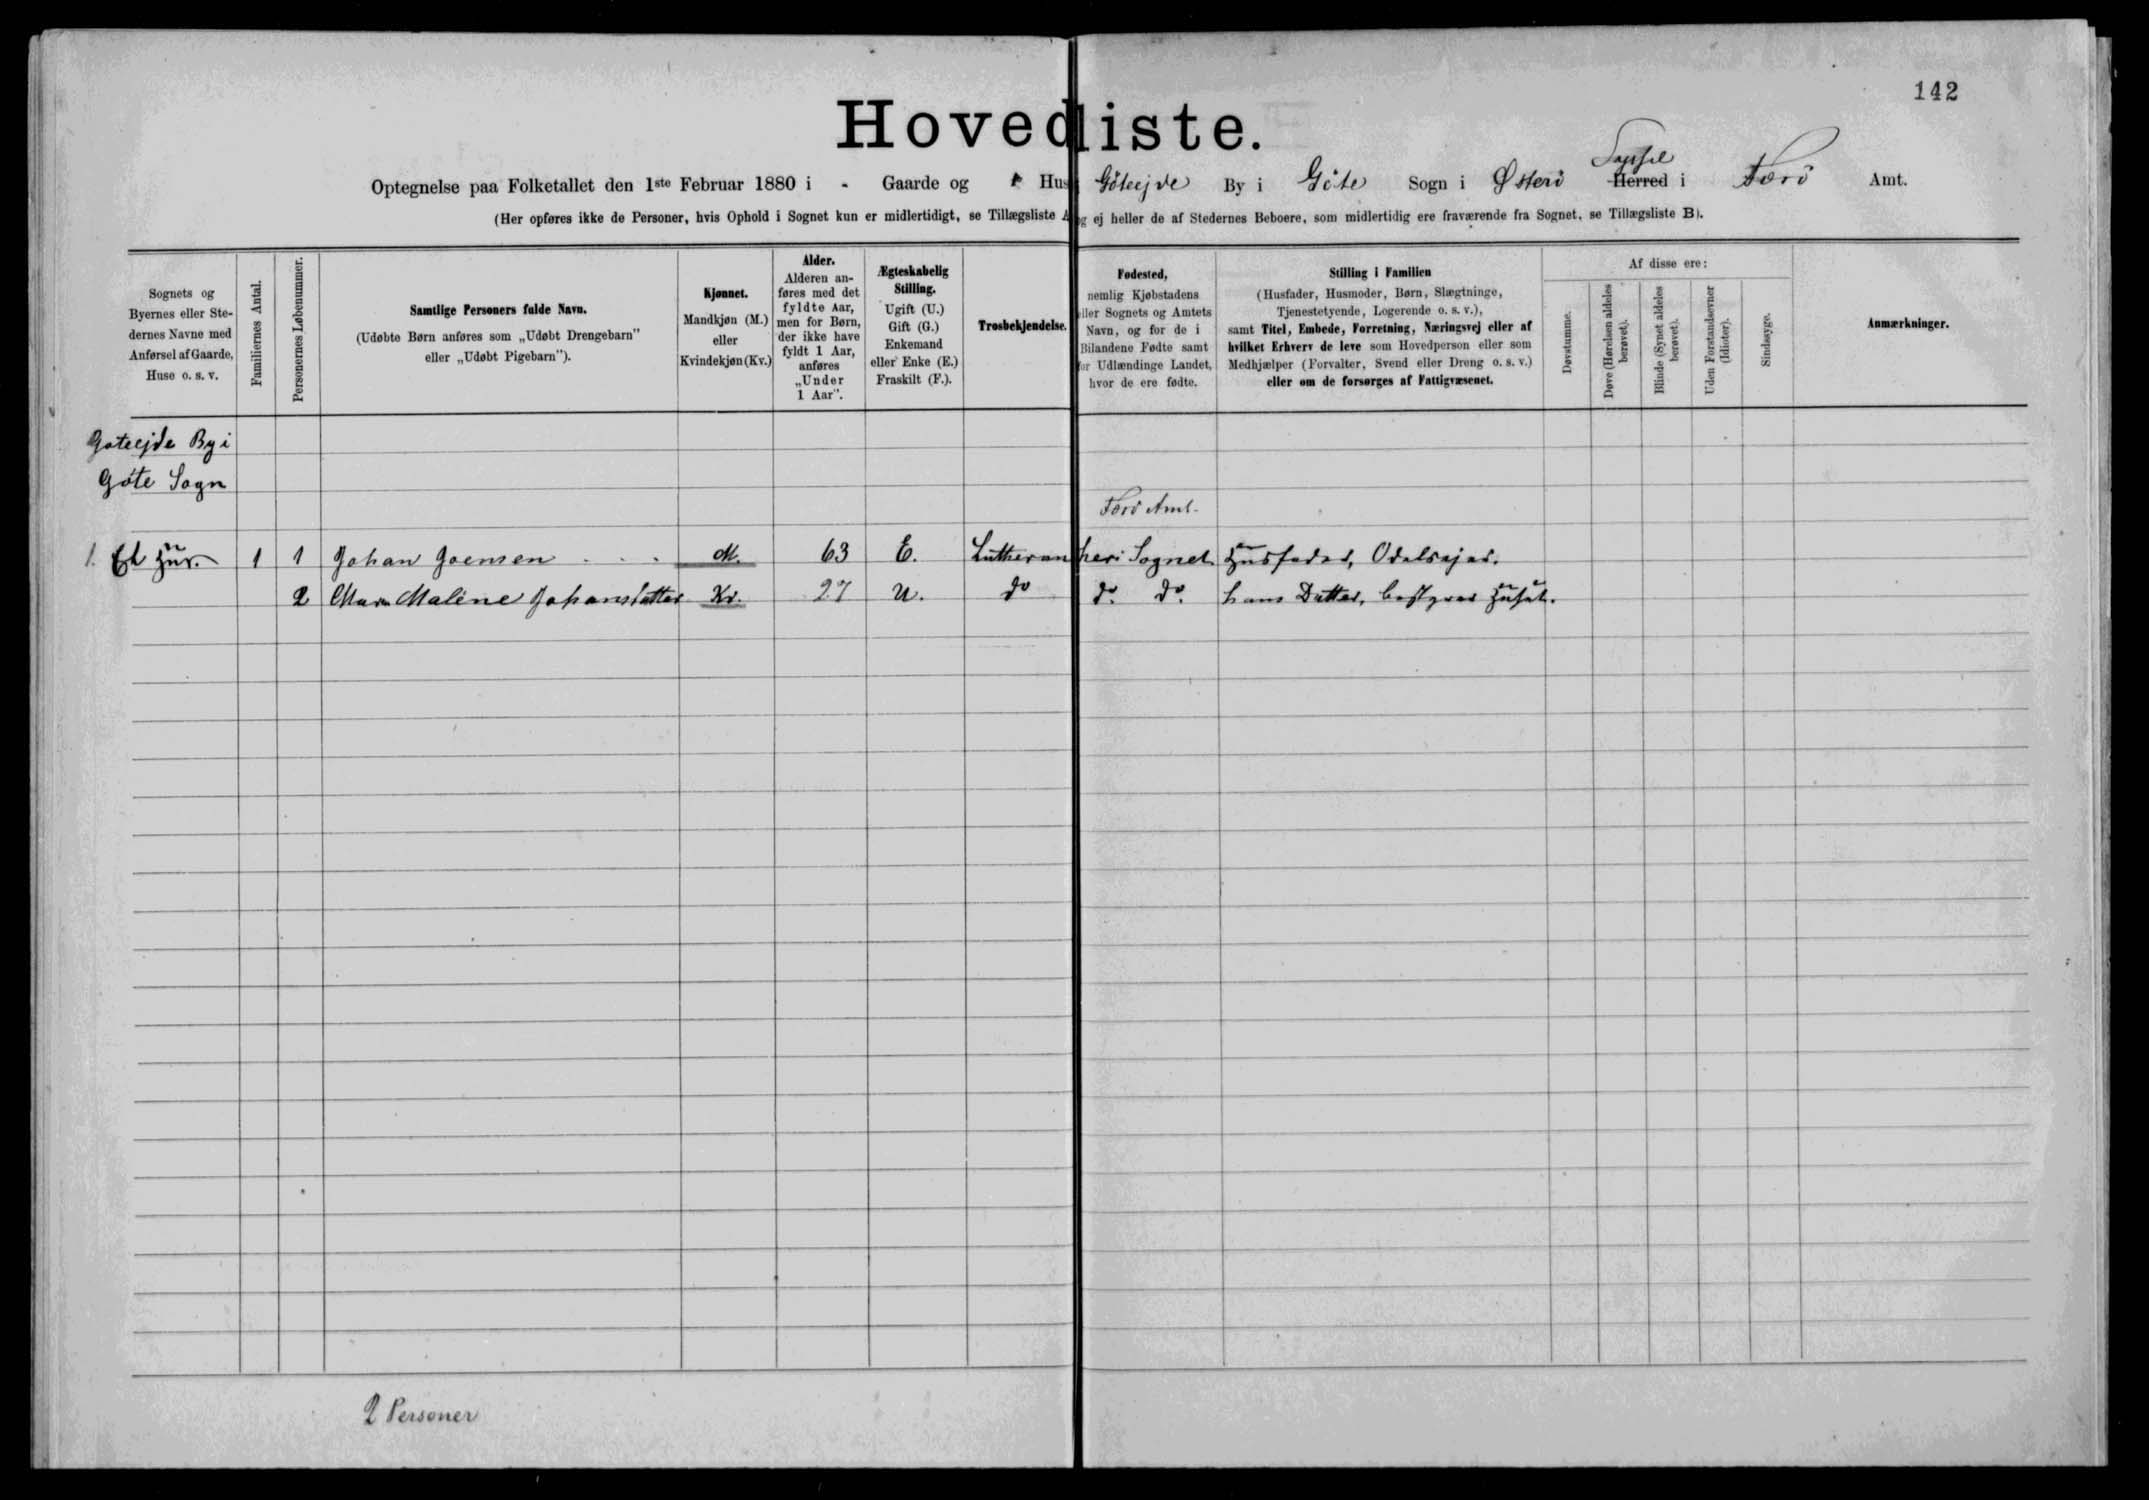 142
Hovedliste.
Optegnelse paa Folketallet den 1ste Februar 1880 i - Gaarde og 1 Hus Göteejde By i Göte Sogn i Østerö Syssel Herred i Færö Amt.
(Her opføres ikke de Personer, hvis Ophold i Sognet kun er midlertidigt, se Tillægsliste A og ej heller de af Stedernes Beboere, som midlertidig ere fraværende fra Sognet, se Tillægsliste B).
Sognets og Byernes eller Stedernes Navne med Anførsel af Gaarde, Huse o. s. v.
Familiernes Antal.
Personernes Løbenummer.
Samtlige Personers fulde Navn.
(Udøbte Børn anføres som „Udøbt Drengebarn”
eller „Udøbt Pigebarn”).
Kjønnet.
Mandkjøn (M.)
eller
Kvindekjøn (Kv.)
Alder.
Alderen anføres med det fyldte Aar, men for Børn, der ikke have fyldt 1 Aar, anføres „Under 1 Aar”.
Ægteskabelig Stilling.
Ugift (U.)
Gift (G.)
Enkemand
eller Enke (E.)
Fraskilt (F.).
Trosbekjendelse.
Fødested,
nemlig Kjøbstadens
eller Sognets og Amtets
Navn, og for de i
Bilandene Fødte samt
for Udlændinge Landet,
hvor de ere fødte.
Stilling i Familien
(Husfader, Husmoder, Børn, Slægtninge,
Tjenestetyende, Logerende o. s. v.),
samt Titel, Embede, Forretning, Næringsvej eller af
hvilket Erhverv de leve som Hovedperson eller som
Medhjælper (Forvalter, Svend eller Dreng o. s. v.)
eller om de forsørges af Fattigvæsenet.
Af disse ere:
Døvstumme.
Døve (Hørelsen aldeles berøvet).
Blinde (Synet aldeles berøvet).
Uden Forstandsevner (Idioter).
Sindssyge.
Anmærkninger.
Goteejde By i
Göte Sogn
Færö Amt.
1. Et Hus. 1 1 Johan Joensen M. 63 E. Lutheran heri Sognet. Husfader, Odelsejer.
2 Maren Maléne Johansdatter Kv. 27 U. do do. do. hans Datter, bestyrer Huset.
2 Personer